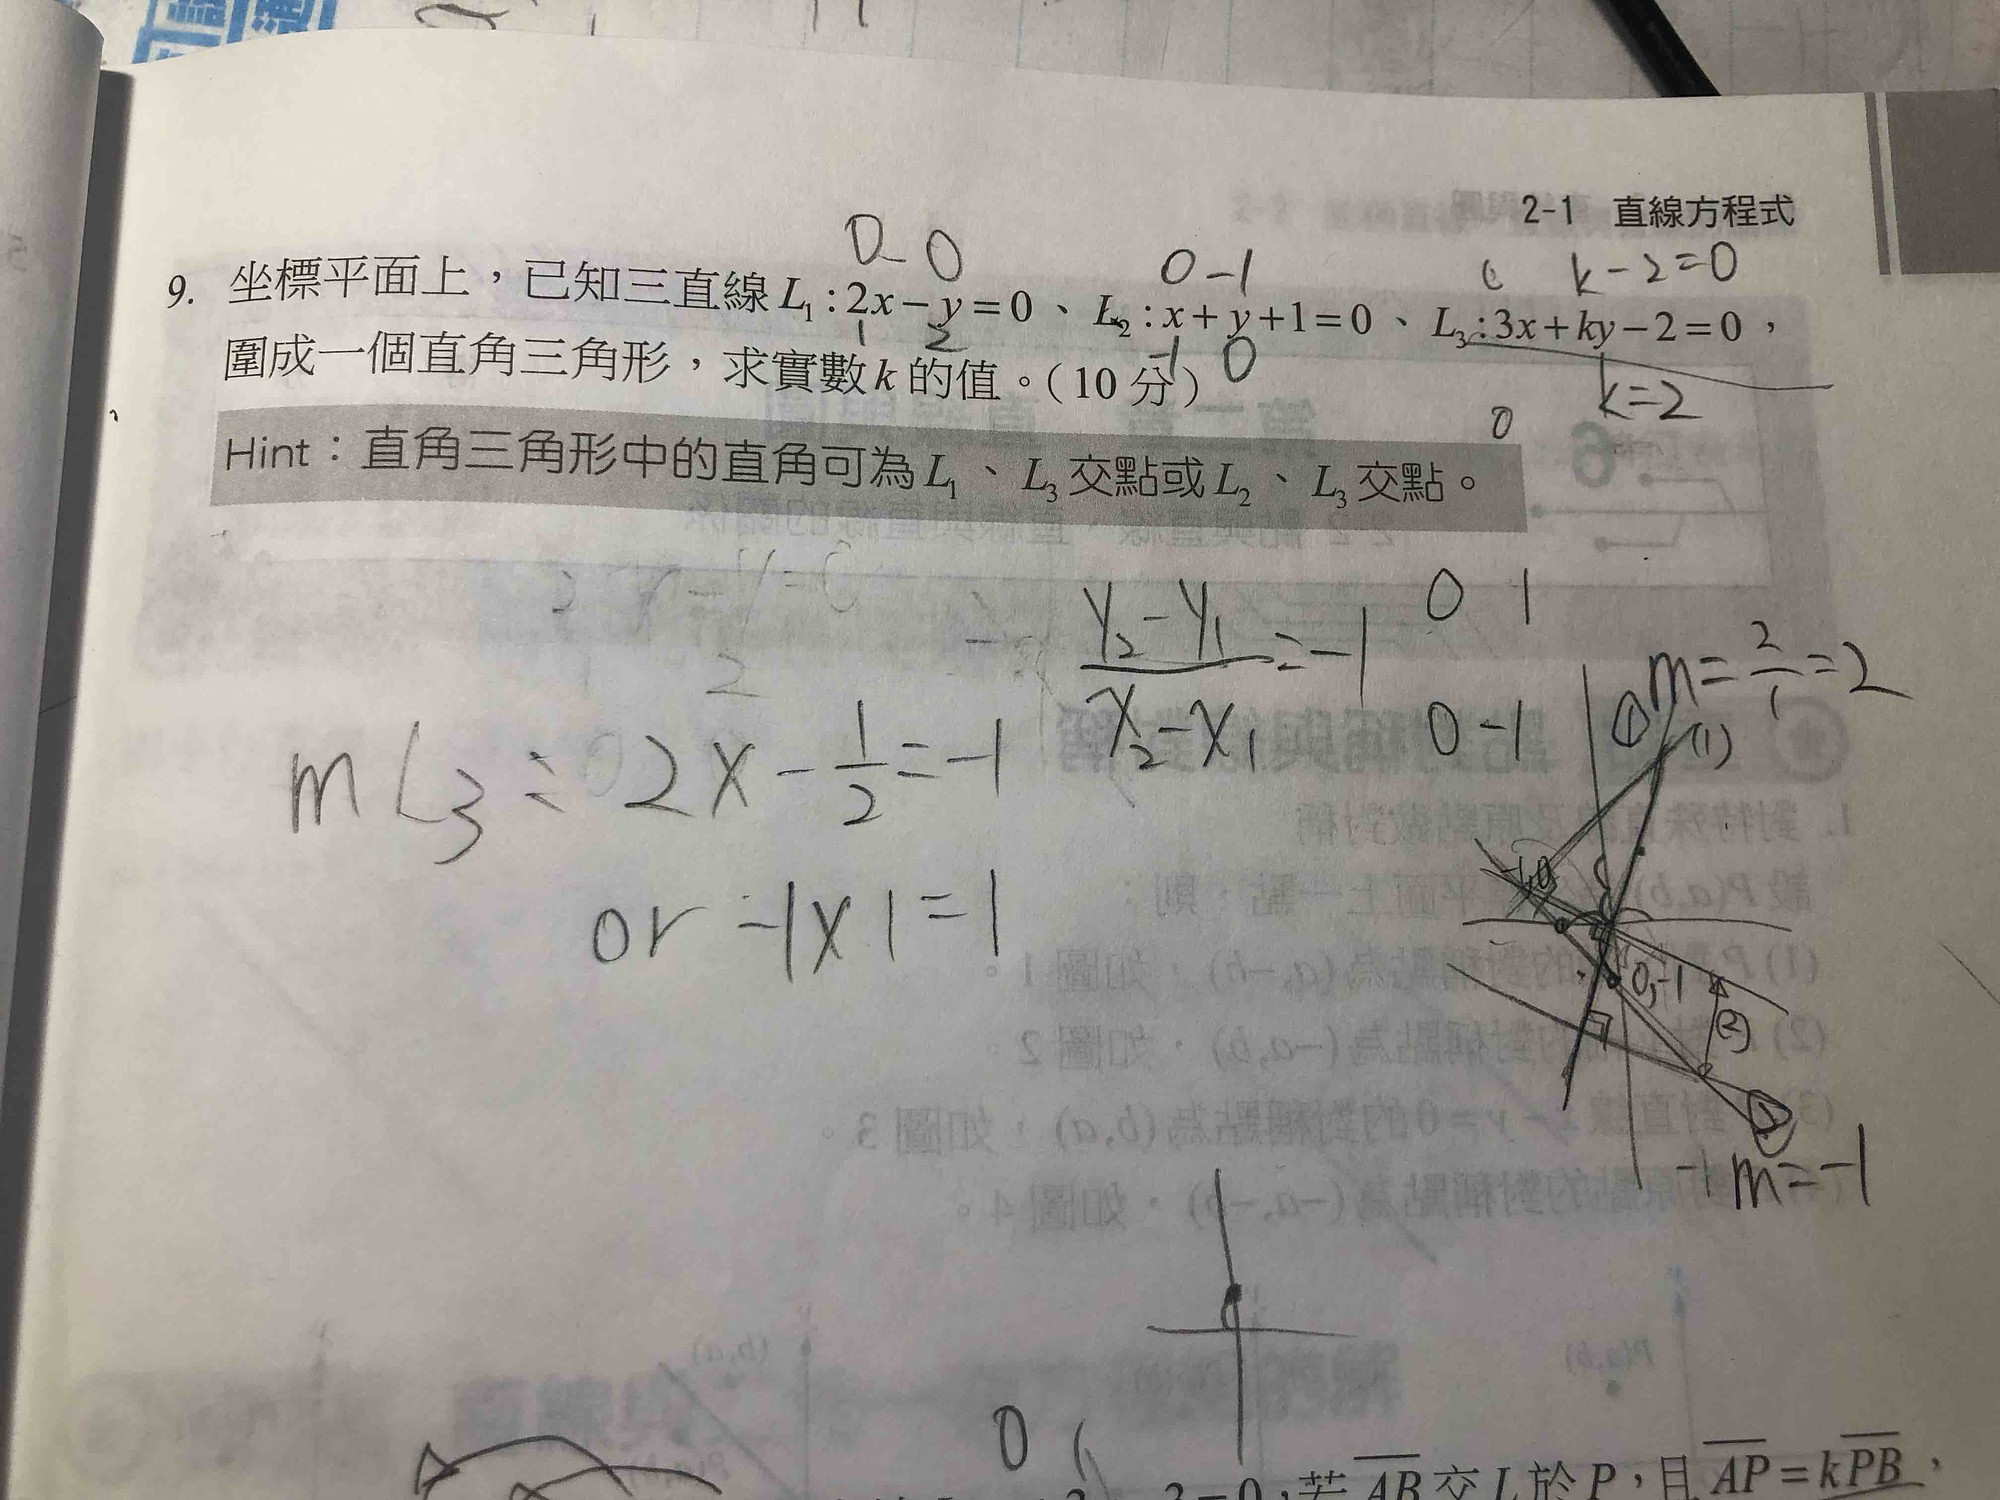 2-1 直線方程式
0 0
0 -1
k-2=0
9. 坐標平面上，已知三直線 L₁:2x-y=0、L₂:x+y+1=0、L₃:3x+ky-2=0，
1 2
-1 0
k=2
圍成一個直角三角形，求實數 k 的值。(10 分)
0
Hint：直角三角形中的直角可為 L₁、L₃ 交點或 L₂、L₃ 交點。
(y₂-y₁)/(x₂-x₁)=-1
0 1
0 -1
m=2/1=2
(1)
mL₃: 2x-1/2=-1
or -1x1=-1
-1,0
0,-1
(2)
-1 m=-1
0
3=0，若 AB 交 L 於 P，且 AP=kPB，